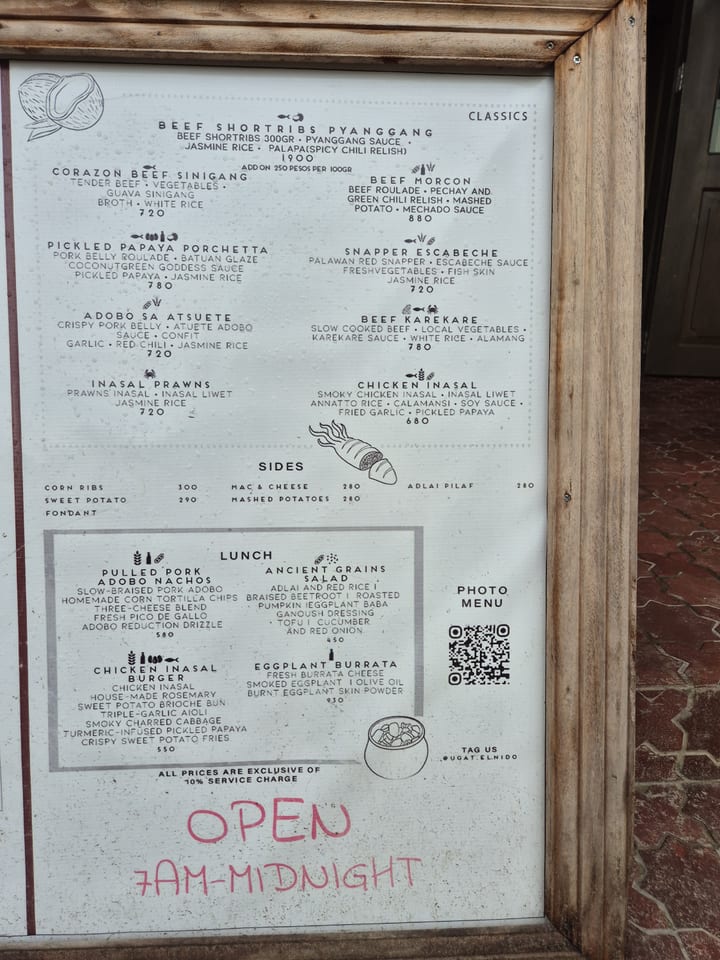 CLASSICS
BEEF SHORTRIBS PYANGGANG
BEEF SHORTRIBS 300GR • PYANGGANG SAUCE •
JASMINE RICE • PALAPA(SPICY CHILI RELISH)
1900
ADD ON 250 PESOS PER 100GR
CORAZON BEEF SINIGANG
TENDER BEEF • VEGETABLES •
GUAVA SINIGANG
BROTH • WHITE RICE
720
BEEF MORCON
BEEF ROULADE • PECHAY AND
GREEN CHILI RELISH • MASHED
POTATO • MECHADO SAUCE
880
PICKLED PAPAYA PORCHETTA
PORK BELLY ROULADE • BATUAN GLAZE
COCONUTGREEN GODDESS SAUCE
PICKLED PAPAYA • JASMINE RICE
780
SNAPPER ESCABECHE
PALAWAN RED SNAPPER • ESCABECHE SAUCE
FRESHVEGETABLES • FISH SKIN
JASMINE RICE
720
ADOBO SA ATSUETE
CRISPY PORK BELLY • ATUETE ADOBO
SAUCE • CONFIT
GARLIC • RED CHILI • JASMINE RICE
720
BEEF KAREKARE
SLOW COOKED BEEF • LOCAL VEGETABLES •
KAREKARE SAUCE • WHITE RICE • ALAMANG
780
INASAL PRAWNS
PRAWNS INASAL • INASAL LIWET
JASMINE RICE
720
CHICKEN INASAL
SMOKY CHICKEN INASAL • INASAL LIWET
ANNATTO RICE • CALAMANSI • SOY SAUCE •
FRIED GARLIC • PICKLED PAPAYA
680
SIDES
CORN RIBS 300
SWEET POTATO 290
FONDANT
MAC & CHEESE 280
MASHED POTATOES 280
ADLAI PILAF 280
LUNCH
PULLED PORK
ADOBO NACHOS
SLOW-BRAISED PORK ADOBO
HOMEMADE CORN TORTILLA CHIPS
THREE-CHEESE BLEND
FRESH PICO DE GALLO
ADOBO REDUCTION DRIZZLE
580
ANCIENT GRAINS
SALAD
ADLAI AND RED RICE I
BRAISED BEETROOT I ROASTED
PUMPKIN IEGGPLANT BABA
GANOUSH DRESSING
• TOFU I CUCUMBER
AND RED ONION
450
CHICKEN INASAL
BURGER
CHICKEN INASAL
HOUSE-MADE ROSEMARY
SWEET POTATO BRIOCHE BUN
TRIPLE-GARLIC AIOLI
SMOKY CHARRED CABBAGE
TURMERIC-INFUSED PICKLED PAPAYA
CRISPY SWEET POTATO FRIES
550
EGGPLANT BURRATA
FRESH BURRATA CHEESE
SMOKED EGGPLANT I OLIVE OIL
BURNT EGGPLANT SKIN POWDER
930
PHOTO
MENU
TAG US
@UGAT.ELNIDO
ALL PRICES ARE EXCLUSIVE OF
10% SERVICE CHARGE
OPEN
7AM-MIDNIGHT